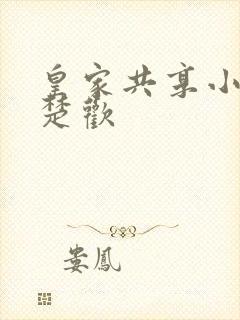 皇家共享小
楚歡
娄鳳